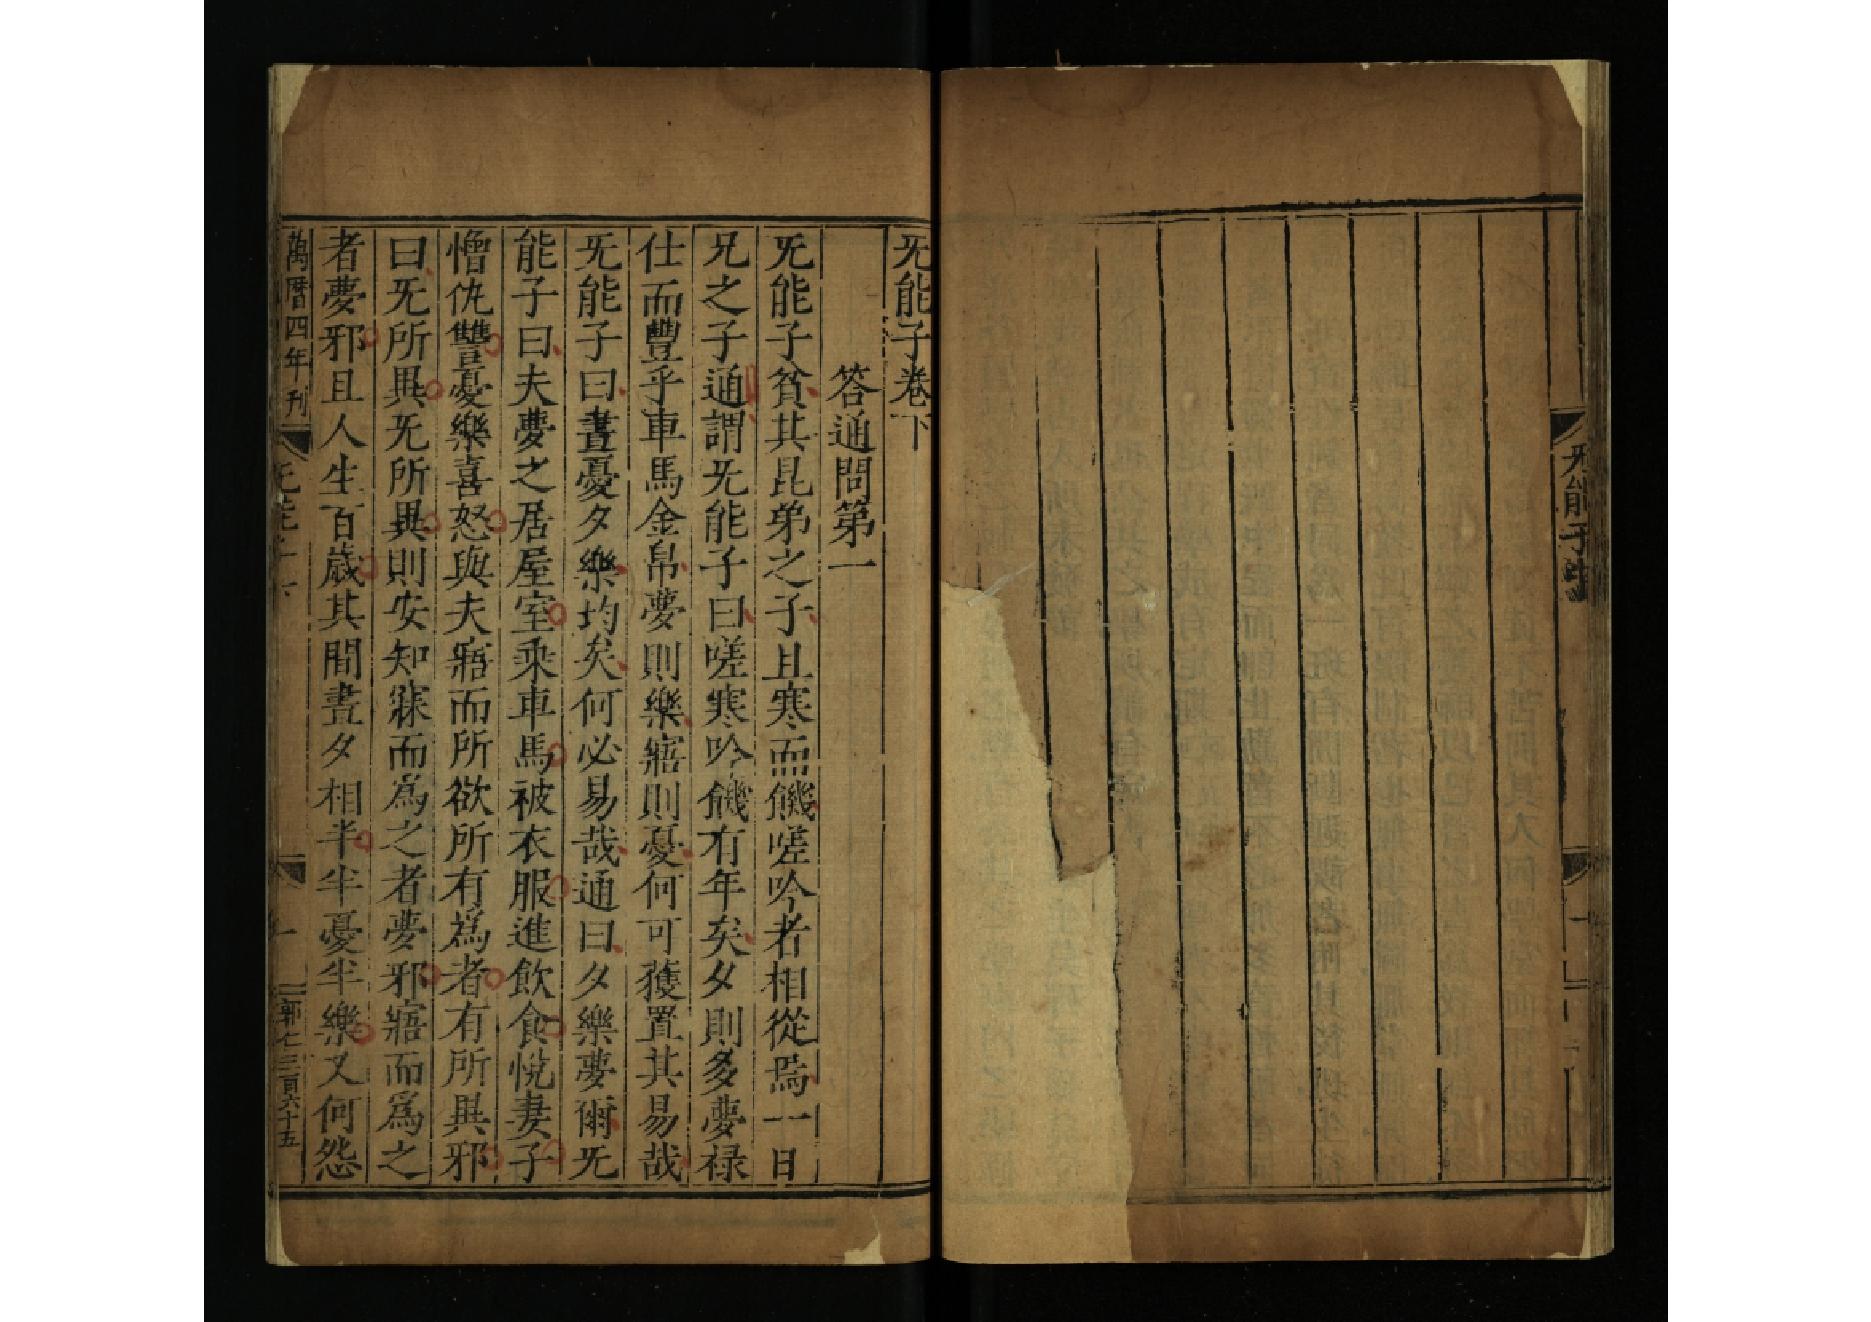 无能子卷下
答通問第一
无能子貧其昆弟之子且寒而饑嗟吟者相從焉一日
兄之子通謂无能子曰嗟寒吟饑有年矣夕則多夢祿
仕而豐乎車馬金帛夢則樂寤則憂何可獲置其易哉
无能子曰晝憂夕樂均矣何必易哉通曰夕樂夢爾无
能子曰夫夢之居屋室乘車馬被衣服進飲食悅妻子
憎仇讐憂樂喜怒與夫寤而所欲所有為者有所異邪
曰无所異无所異則安知寐而為之者夢邪寤而為之
者夢邪且人生百歲其間晝夕相半半憂半樂又何怨
萬曆四年刊
一
郭七 三百六十五
无能子